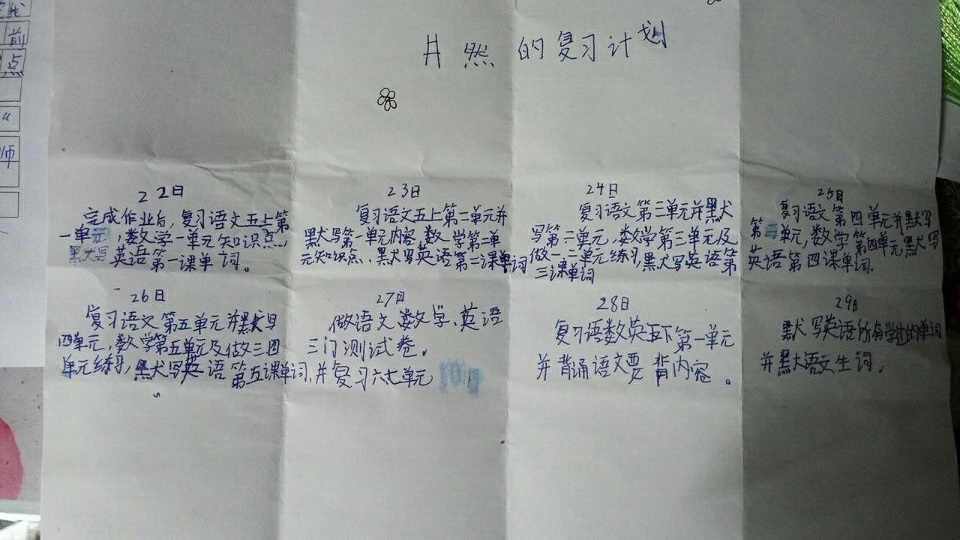 我
前
点
师
井然的复习计划
22日
完成作业后，复习语文五上第
一单元，数学一单元知识点，
默写英语第一课单词。
23日
复习语文五上第二单元并
默写第一单元内容，数学第二单
元知识点、默写英语第二课单词
24日
复习语文第三单元并默
写第二单元，数学第三单元及
做一二单元练习，默写英语第
三课单词
25日
复习语文第四单元并默写
第三单元，数学第四单元默写
英语第四课单词.
26日
复习语文第五单元并默写
四单元，数学第五单元及做三四
单元练习，默写英语第五课单词，
27日
做语文数学，英语
三门测试卷。
并复习六七单元
28日
复习语数英五下第一单元
并背诵语文要背内容。
29日
默写英语所有学过的单词
并默语文生词。